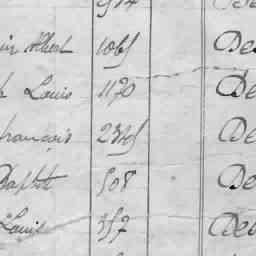 Albert 1065 De
Louis 1170 De
françois 2345 De
Baptste 508 De
Louis 357 De